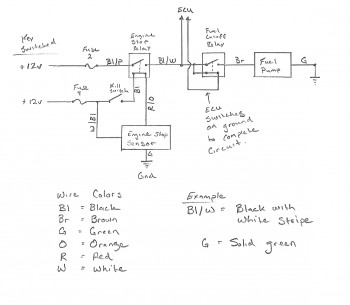 ECU
Key
Switched
+12v
Fuse
2
Bl/P
Engine
Stop
Relay
Bl/W
Fuel
Cutoff
Relay
Br
Fuel
Pump
G
+12v
Fuse
Kill
Switch
Bl
R/O
Engine Stop
Sensor
G
Gnd
ECU
Switches
on ground
to complete
Circuit.
Wire Colors
Bl = Black
Br = Brown
G = Green
O = Orange
R = Red
W = White
Example
Bl/W = Black with
White Stripe
G = Solid green